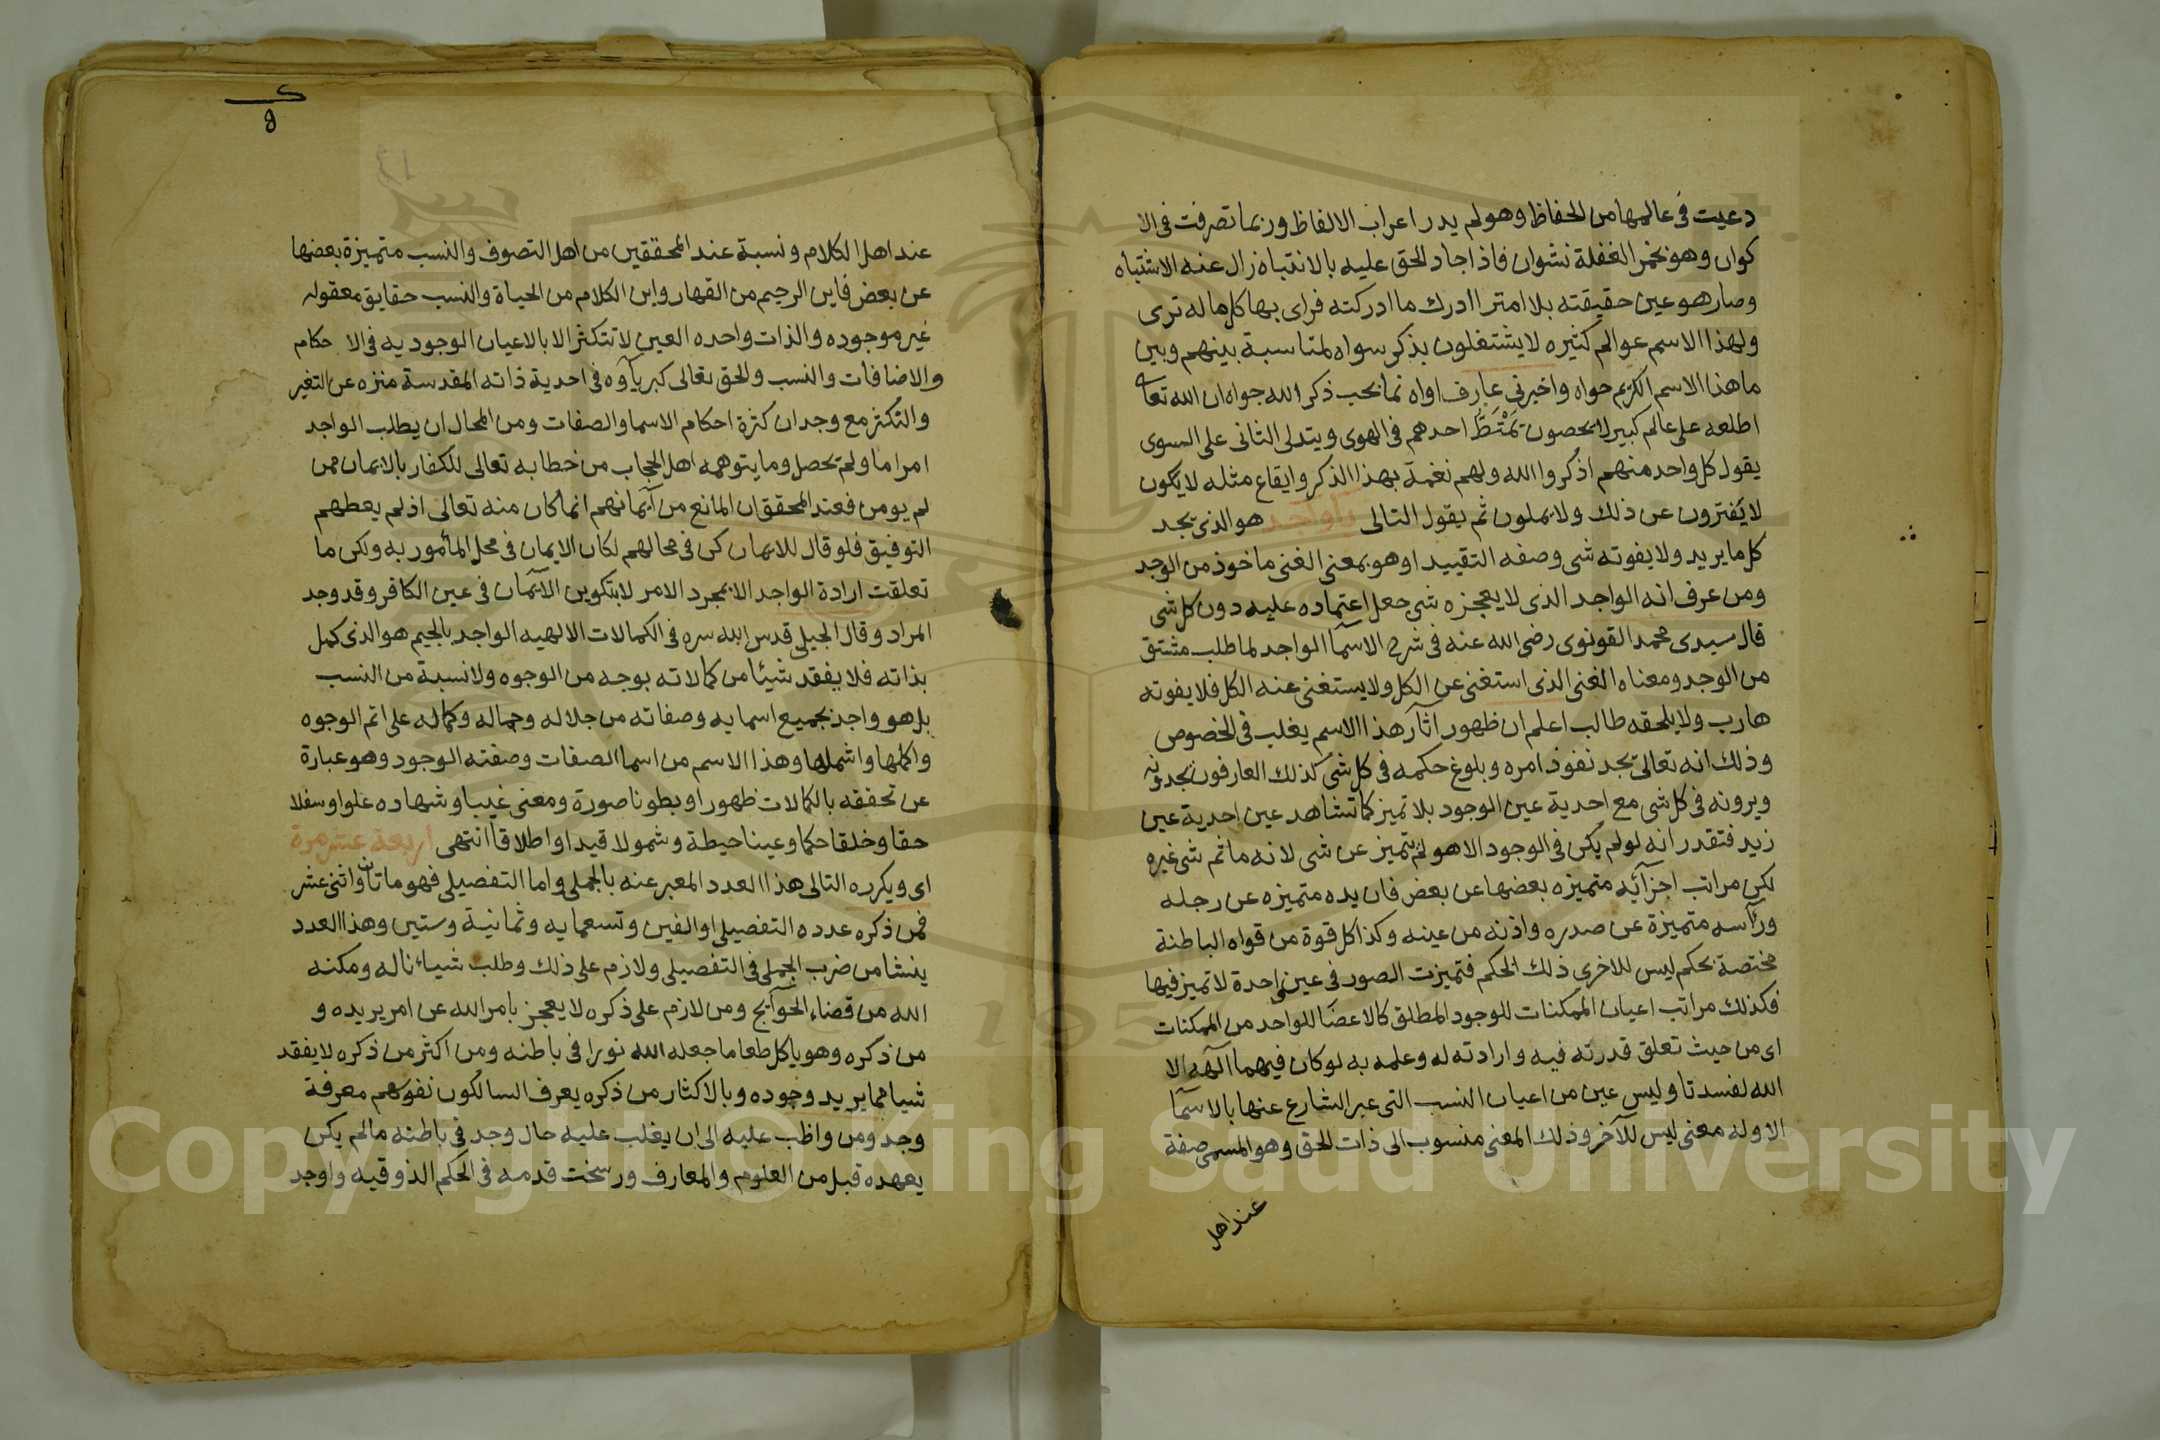 دعيت فى عالمها من الحفاظ وهو لم يدر اعراب الالفاظ وربما تصرفت فى الا
كوان وهو بخمر الغفلة نشوان فاذا جاد الحق عليه بالانتباه زال عنه الاشتباه
وصار هو عين حقيقته بلا امترا ادرك ما ادركته فراى بها كل ماله ترى
ولهذا الاسم عوالم كثيره لا يشتغلون بذكر سواه لمناسبة بينهم وبين
ما هذا الاسم الكريم حواه واخبرنى عارف اواه نما بحب ذكر الله جواه ان الله تعا
اطلعه على عالم كبير لا يحصون يمتط احدهم فى الهوى ويتدلى الثانى على السوى
يقول كل واحد منهم اذكروا الله ولهم نغمة بهذا الذكر وايقاع مثله لا يكون
لا يفترون عن ذلك ولا يملون ثم يقول التالى يا واجد هو الذى يجد
كل ما يريد ولا يفوته شى وصفه التقييد او هو بمعنى الغنى ماخوذ من الوجد
ومن عرف انه الواجد الذى لا يعجزه شى جعل اعتماده عليه دون كل شى
قال سيدى محمد القونوى رضى الله عنه فى شرح الاسما الواجد لما طلب مشتق
من الوجد ومعناه الغنى الذى استغنى عن الكل ولا يستغنى عنه الكل فلا يفوته
هارب ولا يلحقه طالب اعلم ان ظهور اثار هذا الاسم يغلب فى الخصوص
وذلك انه تعالى يجد نفوذ امره وبلوغ حكمه فى كل شى كذلك العارفون يجدونه
ويرونه فى كل شى مع احدية عين الوجود بلا تميز كما تشاهد عين احدية عين
زيد فتقدر انه لو لم يكن فى الوجود الا هو لم يتميز عن شى لانه ما ثم شى غيره
لكن مراتب اجزائه متميزه بعضها عن بعض فان يده متميزه عن رجله
ورأسه متميزة عن صدره واذنه من عينه وكذا كل قوة من قواه الباطنة
مختصة بحكم ليس للاخرى ذلك الحكم فتميزت الصور فى عين واحدة لا تميز فيها
فكذلك مراتب اعيان الممكنات للوجود المطلق كالاعضا للواحد من الممكنات
اى من حيث تعلق قدرته فيه وارادته له وعلمه به لو كان فيهما آلهه الا
الله لفسدتا وليس عين من اعيان النسب التى عبر الشارع عنها بالاسما
الا وله معنى ليس للآخر وذلك المعنى منسوب الى ذات الحق وهو المسمى صفة
عند اهل
عند اهل الكلام ونسبة عند المحققين من اهل التصوف والنسب متميزة بعضها
عن بعض فاين الرحيم من القهار واين الكلام من الحياة والنسب حقايق معقوله
غير موجوده والذات واحده العين لا تتكثر الا بالاعيان الوجوديه فى الا حكام
والاضافات والنسب والحق تعالى كبرياوه فى احدية ذاته المقدسة منزه عن التغير
والتكثر مع وجدان كثرة احكام الاسما والصفات ومن المحال ان يطلب الواجد
امرا ما ولم يحصل وما يتوهمه اهل الحجاب من خطابه تعالى للكفار بالايمان ممن
لم يومن فعند المحقق ان المانع من ايمانهم انما كان منه تعالى اذ لم يعطهم
التوفيق فلو قال للايمان كن فى محالهم لكان الايمان فى محل المأمور به ولكن ما
تعلقت ارادة الواجد الا بمجرد الامر لا بتكوين الايمان فى عين الكافر وقد وجد
المراد وقال الجيلى قدس الله سره فى الكمالات الالهيه الواجد بالجيم هو الذى كمل
بذاته فلا يفقد شيئا من كمالاته بوجه من الوجوه ولا نسبة من النسب
بل هو واجد بجميع اسمايه وصفاته من جلاله وجماله وكماله على اتم الوجوه
واكملها واشملها وهذا الاسم من اسما الصفات وصفته الوجود وهو عبارة
عن تحققه بالكمالات ظهورا وبطونا صورة ومعنى غيبا وشهاده علوا وسفلا
حقا وخلقا حكما وعينا حيطة وشمولا قيدا واطلاقا انتهى اربعة عشر مرة
اى ويكرره التالى هذا العدد المعبر عنه بالجملى واما التفصيلى فهو ماتان واثنى عشر
فمن ذكره عدده التفصيلى او الفين وتسعمايه وثمانية وستين وهذا العدد
ينشا من ضرب الجملى فى التفصيلى ولازم على ذلك وطلب شيا ناله ومكنه
الله من قضاء الحوايج ومن لازم على ذكره لا يعجز بامر الله عن امر يريده و
من ذكره وهو ياكل طعاما جعله الله نورا فى باطنه ومن اكثر من ذكره لا يفقد
شيا مما يريد وجوده وبالاكثار من ذكره يعرف السالكون نفوسهم معرفة
وجد ومن واظب عليه الى ان يغلب عليه حال وجد فى باطنه ما لم يكن
يعهده قبل من العلوم والمعارف ورسخت قدمه فى الحكم الذوقيه واوجد
Copyright © King Saud University